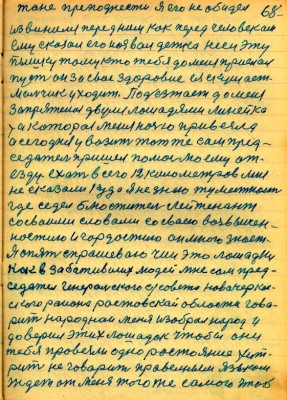 68-
тане преподнести Я его не обидел
извинель перед ним как перед человекам
ему сказал его назвал детка неси эту
пышку тому кто тебя до меня прислал
пусть он за свае здоровие ея скушает.
Малчик уходит. Подезжает до меня
запряженая двумя лошадями линейка
та каторая меня ночю привезла
а сегодня увозит тот же сам пред-
седател пришел помоч моему от-
езду. ехать всего 12 километров мне
не сказали куда я не знаю
где седел блюститель Лейтенант
со сваими словами со сваею возвышен-
ностию и гордостию он много знает.
Я опять спрашеваю чии это лошадки
как в забативших людей мне сам пред-
седатель генеральского с/совета новочерка-
ского района растовской области гова-
рит народная меня избрал народ и
доверил этих лошадок чтобы они
тебя провезли одно растояние хит-
рит не говарит правельным языком
ждет от меня того же самого чтоб